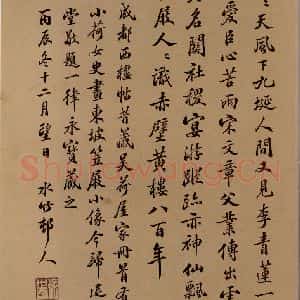 天風下九埏人間又見李青蓮一
愛臣心苦雨宋文章父業傳出
名關社稷宴游蹤跡亦神仙飄
屐人人識赤壁黃樓八百年
成都西樓帖昔藏吳荷屋家冊首有
小荷女史畫東坡笠屐小像今歸
堂敬題一律永寶藏之
丙辰冬十二月望日水竹邨人
Shufawang.CN